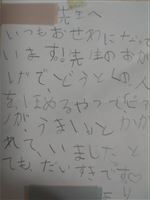 先生へ
いつもおせわになって
います!先生のおか
げで、どうとくの人
を、ほめるやつでピア
ノが、うまいとか
れていました と
ても、だいすきです♡
より